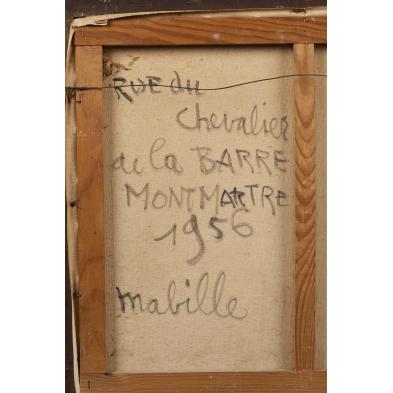 RUE du
Chevalier
de la BARRE
MONTMARTRE
1956
mabille